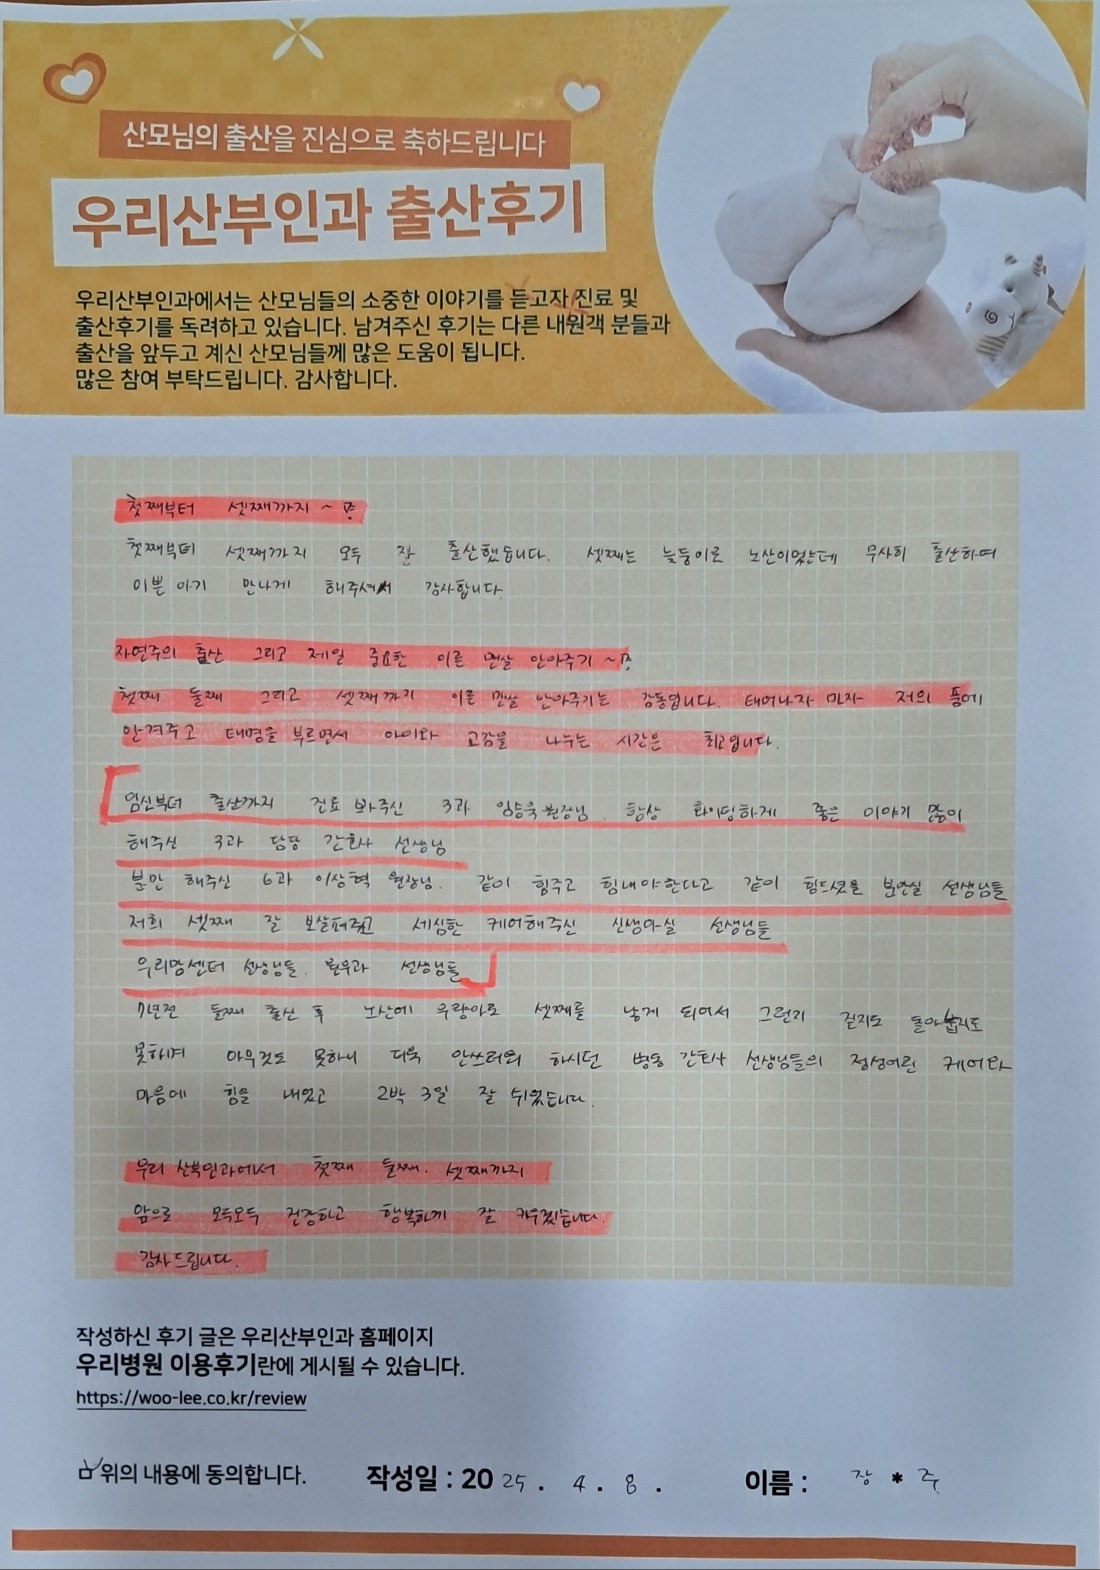 산모님의 출산을 진심으로 축하드립니다
우리산부인과 출산후기
우리산부인과에서는 산모님들의 소중한 이야기를 듣고자 진료 및
출산후기를 독려하고 있습니다. 남겨주신 후기는 다른 내원객 분들과
출산을 앞두고 계신 산모님들께 많은 도움이 됩니다.
많은 참여 부탁드립니다. 감사합니다.
첫째부터 셋째까지 ~
첫째부터 셋째까지 모두 잘 출산했습니다. 셋째는 늦둥이로 노산이었는데 무사히 출산하여
이쁜 아기 만나게 해주셔서 감사합니다.
자연주의 출산 그리고 제일 중요한 이른 맨살 안아주기 ~
첫째 둘째 그리고 셋째까지 이른 맨살 안아주기는 감동입니다. 태어나자 마자 저의 품에
안겨주고 태명을 부르면서 아이와 교감을 나누는 시간은 최고입니다.
임신부터 출산까지 진료 봐주신 3과 임승욱 원장님. 항상 화이팅하게 좋은 이야기 많이
해주신 3과 담당 간호사 선생님
분만 해주신 6과 이상혁 원장님. 같이 힘주고 힘내야한다고 같이 힘드셨을 분만실 선생님들
저희 셋째 잘 보살펴주고 세심한 케어해주신 신생아실 선생님들
우리맘센터 선생님들. 원무과 선생님들
7년전 둘째 출산 후 노산에 셋째를 낳게 되어서 그런지 걷지도 돌아눕지도
못하며 아무것도 못하니 더욱 안쓰러워 하시던 병동 간호사 선생님들의 정성어린 케어와
마음에 힘을 내었고 2박 3일 잘 쉬었습니다.
우리 산부인과에서 첫째 둘째. 셋째까지
앞으로 모두모두 건강하고 행복하게 잘 키우겠습니다.
감사드립니다.
작성하신 후기 글은 우리산부인과 홈페이지
우리병원 이용후기란에 게시될 수 있습니다.
https://woo-lee.co.kr/review
위의 내용에 동의합니다. 작성일 : 2025. 4. 8. 이름 : 장 * 주